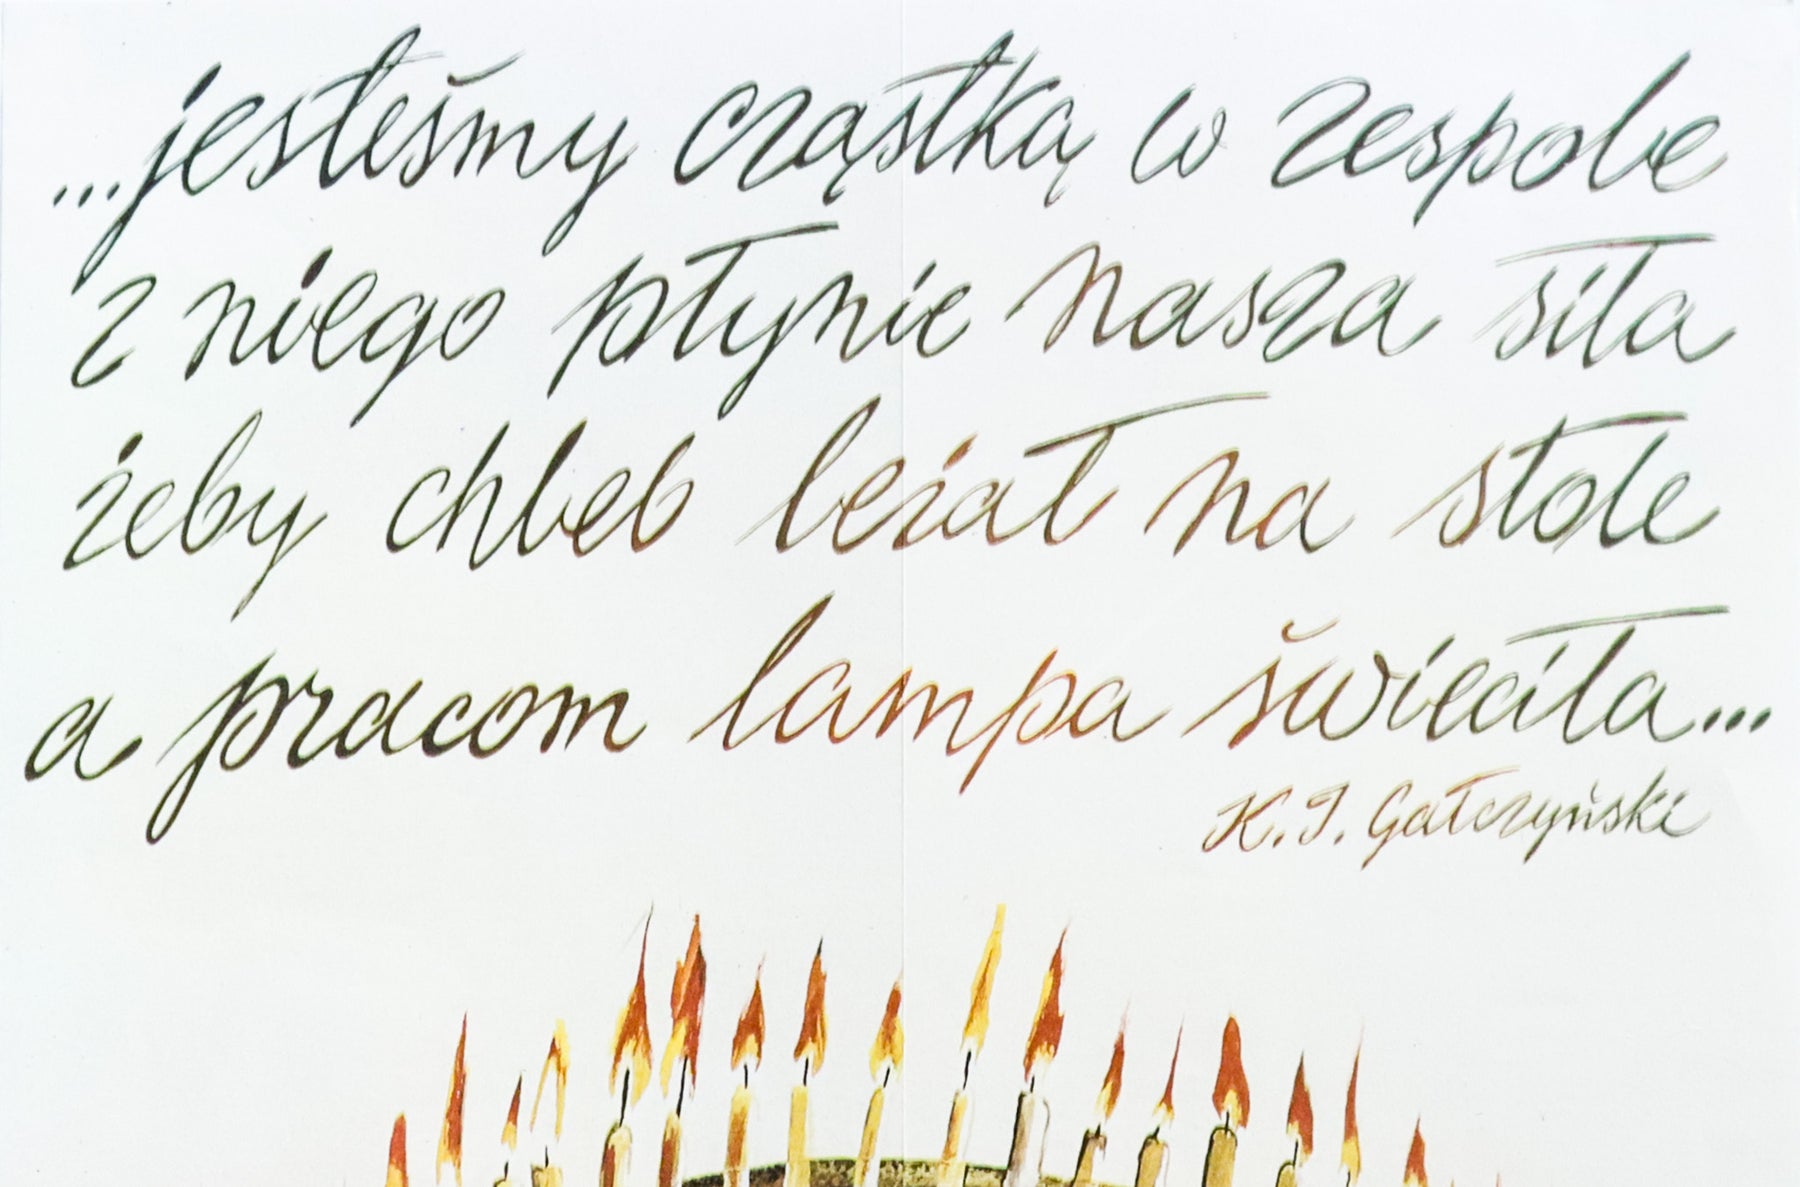 ...jesteśmy cząstką w zespole
z niego płynie nasza siła
żeby chleb leżał na stole
a pracom lampa świeciła...
K. I. Gałczyński